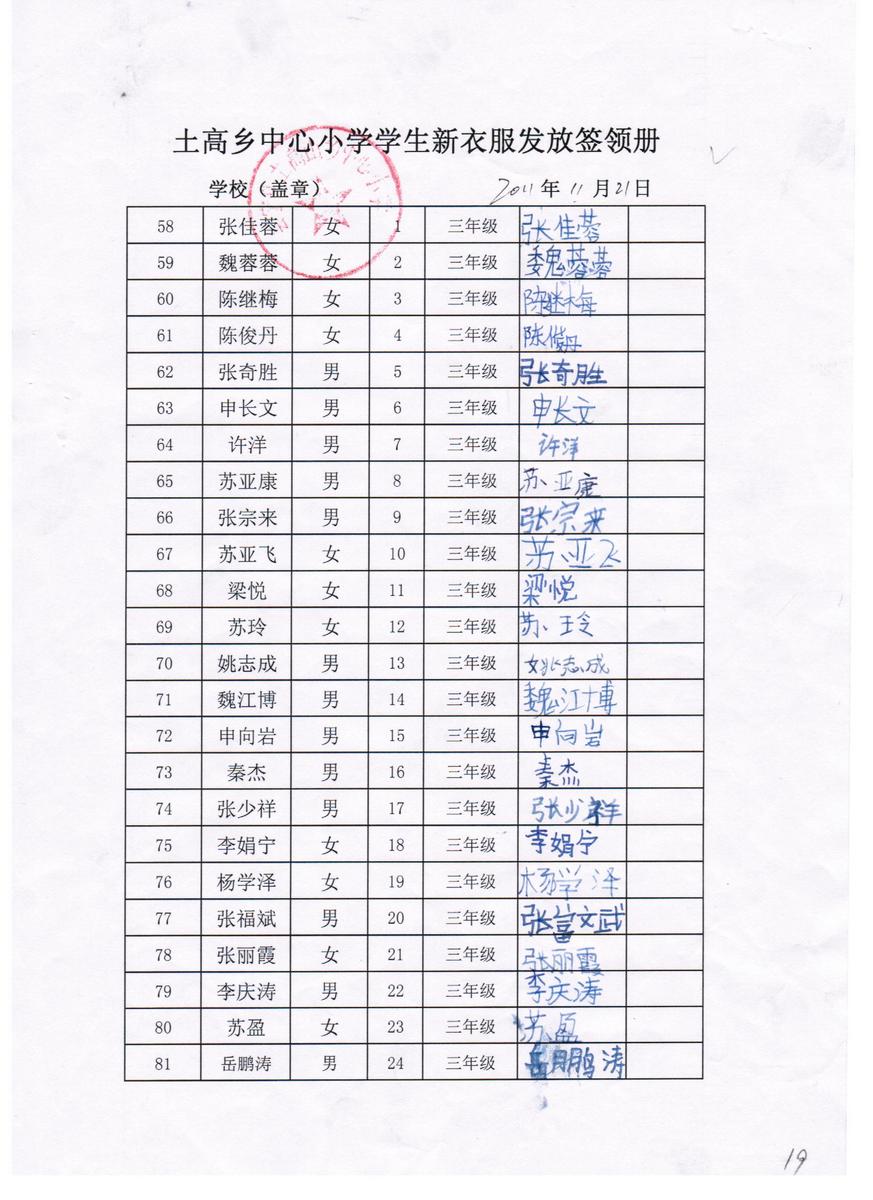 土高乡中心小学学生新衣服发放签领册
学校（盖章） 2011年11月21日
58 张佳蓉 女 1 三年级 张佳蓉
59 魏蓉蓉 女 2 三年级 魏蓉蓉
60 陈继梅 女 3 三年级 陈继梅
61 陈俊丹 女 4 三年级 陈俊丹
62 张奇胜 男 5 三年级 张奇胜
63 申长文 男 6 三年级 申长文
64 许洋 男 7 三年级 许洋
65 苏亚康 男 8 三年级 苏亚康
66 张宗来 男 9 三年级 张宗来
67 苏亚飞 女 10 三年级 苏亚飞
68 梁悦 女 11 三年级 梁悦
69 苏玲 女 12 三年级 苏玲
70 姚志成 男 13 三年级 姚志成
71 魏江博 男 14 三年级 魏江博
72 申向岩 男 15 三年级 申向岩
73 秦杰 男 16 三年级 秦杰
74 张少祥 男 17 三年级 张少祥
75 李娟宁 女 18 三年级 李娟宁
76 杨学泽 女 19 三年级 杨学泽
77 张福斌 男 20 三年级 张富文武
78 张丽霞 女 21 三年级 张丽霞
79 李庆涛 男 22 三年级 李庆涛
80 苏盈 女 23 三年级 苏盈
81 岳鹏涛 男 24 三年级 岳鹏涛
19